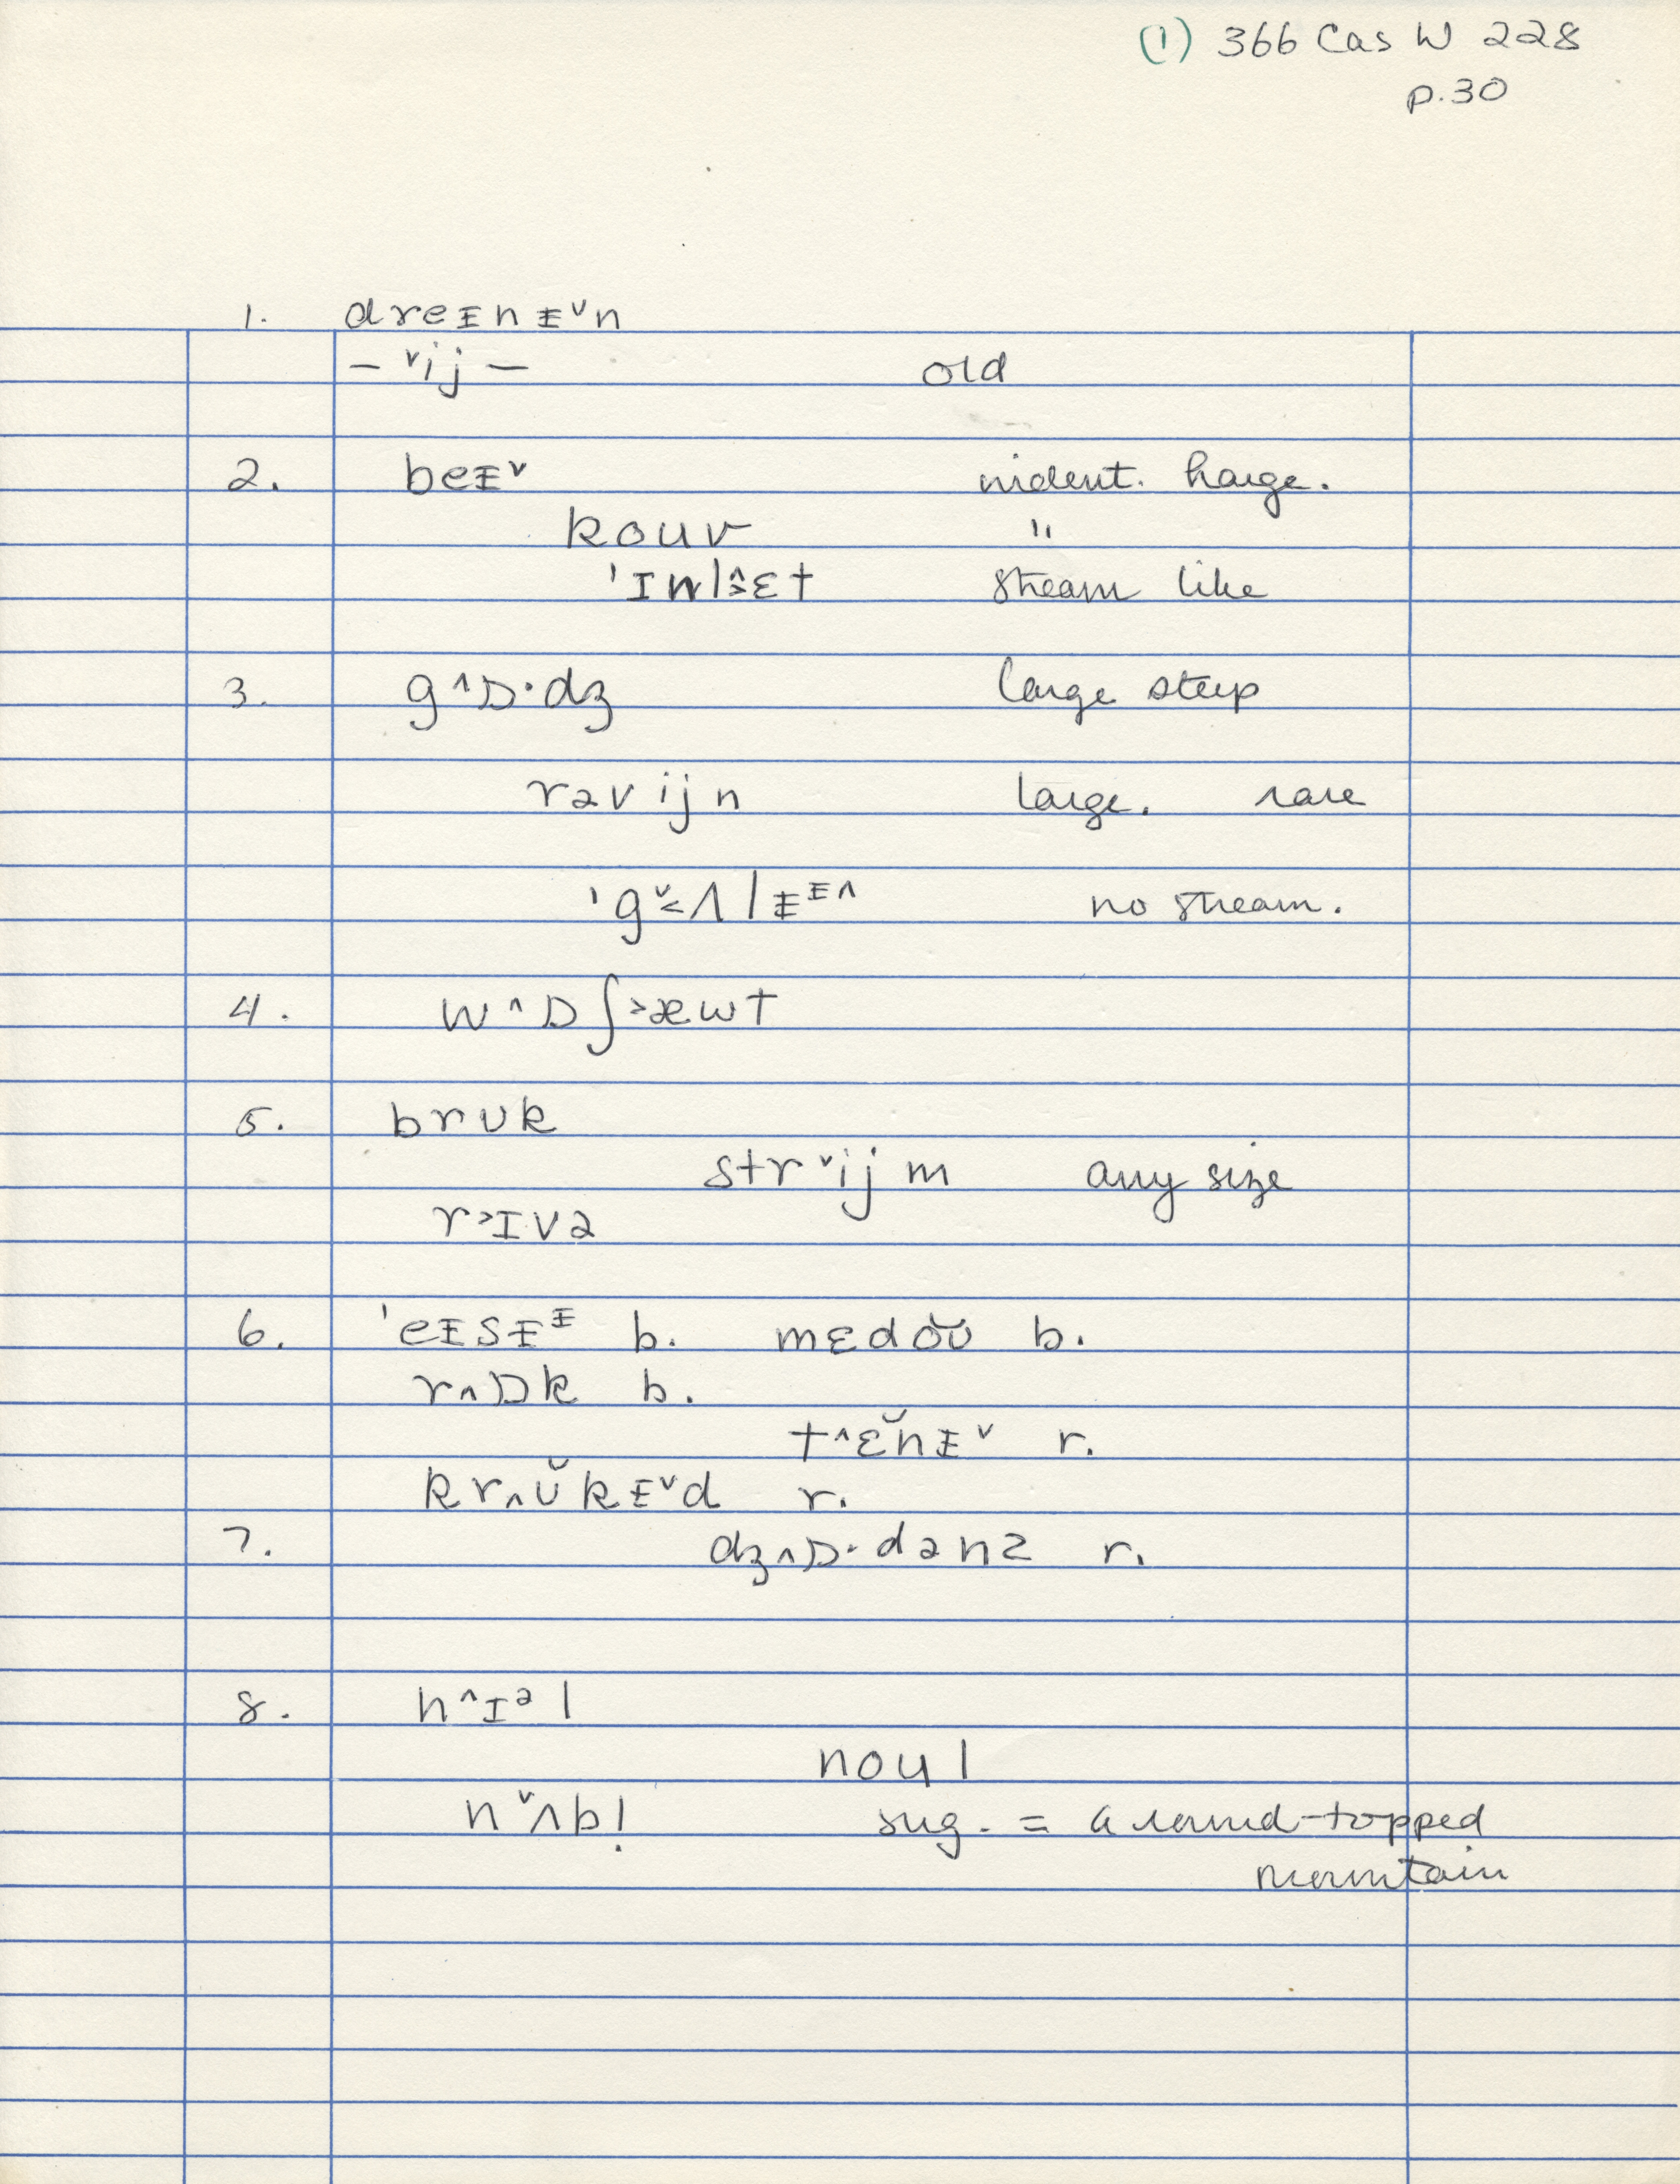 (1) 366 Cas W 228
p.30
1. dreᵻnᵻ˅n
– ˅ij – old
2. beᵻ˅ indent. large.
kouv "
'ɪnl>̂ɛt stream like
3. g˄ɒ·dʒ large steep
rəvijn large. rare
'g˅<ʌlᵻᵻ˄ no stream.
4. w˄ɒʃ>æwt
5. brʊk
str˅ijm any size
r>ɪvə
6. 'eᵻsᵻᵻ b. mɛdŏʊ b.
r˄ɒk b.
t˄ɛ̆nᵻ˅ r.
kr˄ʊ̆kᵻ˅d r.
7. dʒ˄ɒ·dənz r.
8. h˄ɪəl
noul
n˅ʌbl̩ sug. = a round-topped
mountain